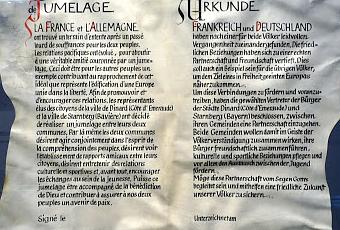 de JUMELAGE
LA FRANCE et L'ALLEMAGNE,
ont trouvé un terrain d'entente après un passé
lourd de souffrances pour les deux peuples.
les relations pacifiques ont abouti
à une véritable amitié couronnée par un jume-
lage. Ceci doit être pour les autres peuples un
exemple contribuant au rapprochement de cet
idéal que représente l'édification d'une Europe
unie dans la liberté. Afin de promouvoir et
d'encourager ces relations, les représentants
élus des citoyens de la ville de Dinard (Côte d'Emeraude)
et la ville de Starnberg (Bavière) ont décidé
de réaliser un jumelage entre leurs deux
communes. Par là même les deux communes
désirent agir conjointement dans l'esprit de
la compréhension des peuples, désirent voir
l'établissement de rapports amicaux entre leurs
citoyens, désirent entretenir des relations
culturelles et sportives et, avant tout, encourager
les échanges au sein de la jeunesse. Puisse ce
jumelage être accompagné de la bénédiction
de Dieu et contribuer à assurer à nos deux
peuples un avenir de paix.
Signé le
URKUNDE
FRANKREICH und DEUTSCHLAND
haben nach einer für beide Völker leidvollen
Vergangenheit zueinander gefunden. Die fried-
lichen Beziehungen haben sich zu einer echten
Partnerschaft und Freundschaft vertieft. Dies
soll auch ein Beispiel sein für die übrigen Völker,
um den Ziele eines in Freiheit geeinten Europas
näher zu kommen.
Um diese Verbindungen zu fördern und voranzu-
treiben, haben die gewählten Vertreter der Bürger
der Städte Dinard (Côte d'Emeraude) und
Starnberg (Bayern) beschlossen, zwischen
ihren Gemeinden eine Partnerschaft einzugehen.
Beide Gemeinden wollen damit im Geiste der
Völkerverständigung zusammen wirken, ihre
Bürger freundschaftlich zusammenführen,
kulturelle und sportliche Beziehungen pflegen und
vor allem den Austausch zwischen der Jugend
fördern.
Möge diese Partnerschaft vom Segen Gottes
begleitet sein und mithelfen eine friedliche Zukunft
unserer Völker zu sichern.
Unterzeichnet am